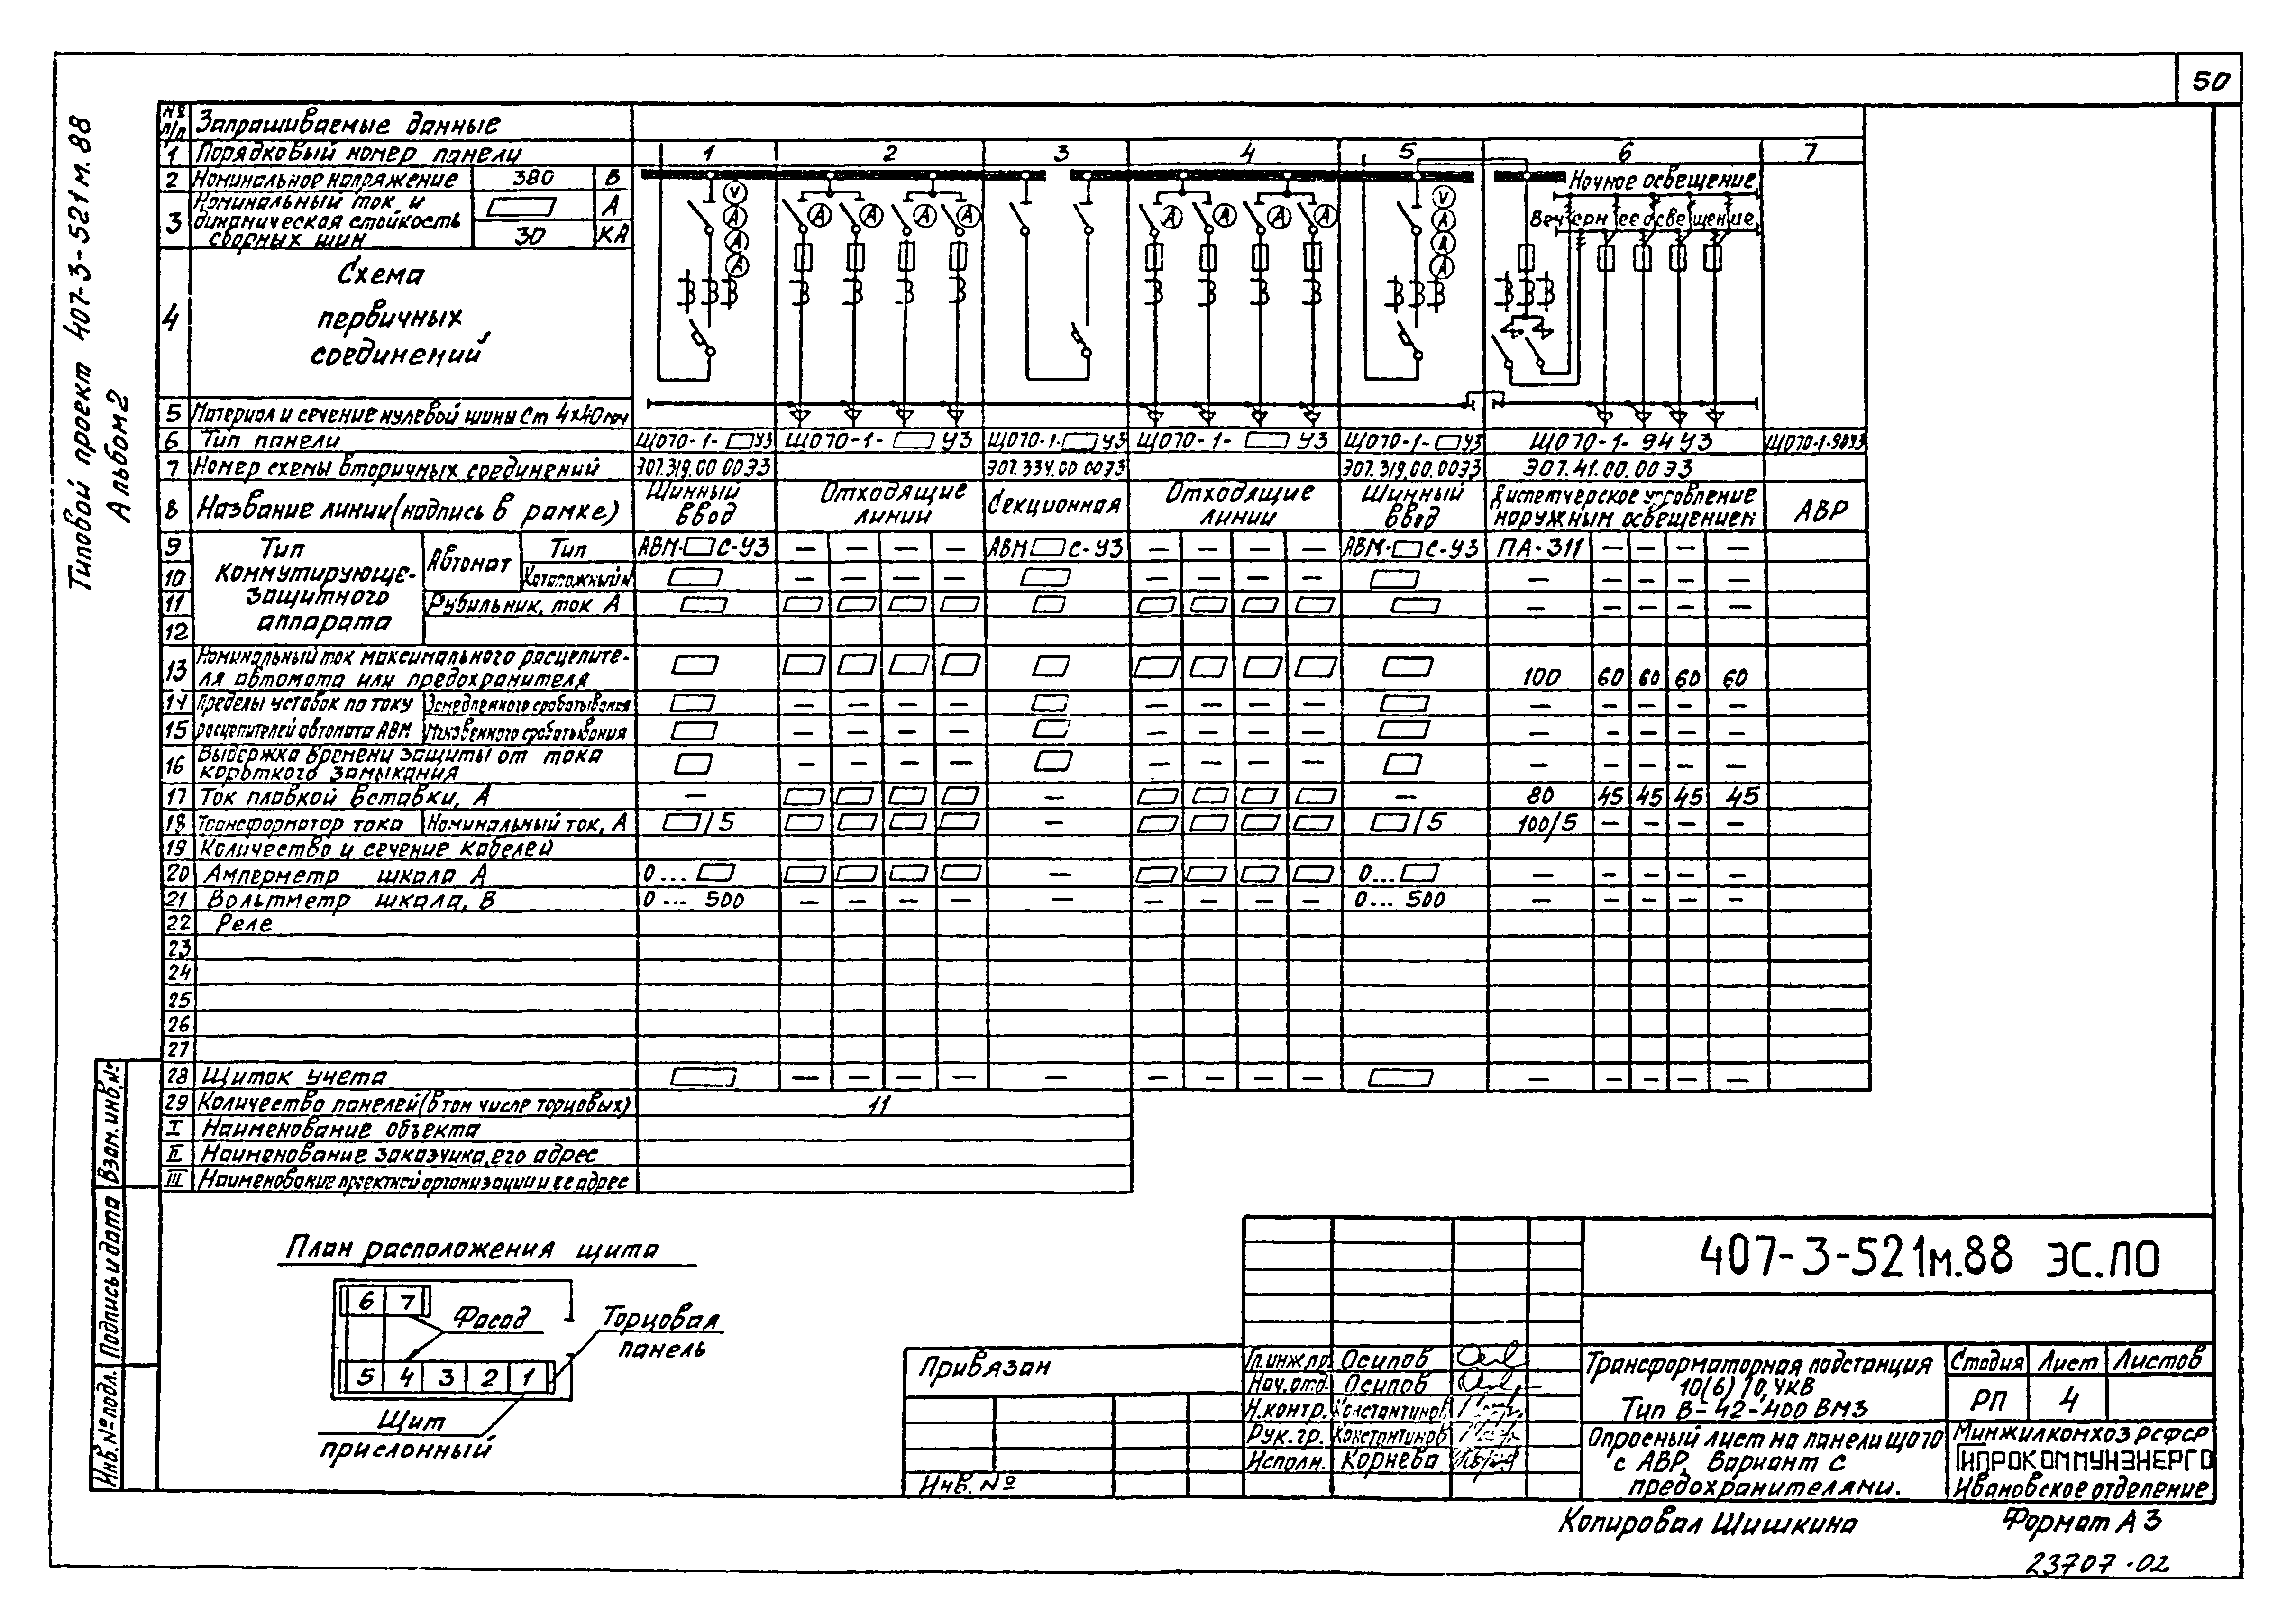 50
Типовой проект 407-3-521м.88
Альбом 2
№ п/п Запрашиваемые данные
1 Порядковый номер панели 1 2 3 4 5 6 7
2 Номинальное напряжение 380 В
3 Номинальный ток и динамическая стойкость сборных шин А
30 КА
Ночное освещение
Вечернее освещение
V A A A
A A A A
A A A A
V A A A
4 Схема первичных соединений
5 Материал и сечение нулевой шины Ст 4х40мм
6 Тип панели ЩО70-1- У3 ЩО70-1- У3 ЩО70-1- У3 ЩО70-1- У3 ЩО70-1- У3 ЩО70-1-94У3 ЩО70-1-90У3
7 Номер схемы вторичных соединений ЭО7.319.00.00Э3 ЭО7.334.00.00Э3 ЭО7.319.00.00Э3 ЭО7.41.00.00Э3
8 Название линии (надпись в рамке) Шинный ввод Отходящие линии Секционная Отходящие линии Шинный ввод Диспетчерское управление наружным освещением АВР
9 Тип коммутирующе-защитного аппарата Автомат Тип АВМ- С-У3 — — — — АВМ С-У3 — — — — АВМ- С-У3 ПА-311 — — — —
10 Каталожный № — — — — — — — — — — — — —
11 Рубильник, ток А — — — — —
12
13 Номинальный ток максимального расцепителя автомата или предохранителя 100 60 60 60 60
14 Пределы уставок по току Замедленного срабатывания — — — — — — — — — — — — —
15 расцепителей автомата АВМ Мгновенного срабатывания — — — — — — — — — — — — —
16 Выдержка времени защиты от тока короткого замыкания — — — — — — — — — — — — —
17 Ток плавкой вставки, А — — — 80 45 45 45 45
18 Трансформатор тока Номинальный ток, А /5 — /5 100/5 — — — —
19 Количество и сечение кабелей
20 Амперметр шкала А 0... — 0... — — — — —
21 Вольтметр шкала, В 0... 500 — — — — — — — — — 0... 500 — — — — —
22 Реле
23
24
25
26
27
28 Щиток учета — — — — — — — — — — — — — —
29 Количество панелей (в том числе торцовых) 11
I Наименование объекта
II Наименование заказчика, его адрес
III Наименование проектной организации и ее адрес
План расположения щита
6 7
Фасад
Торцовая панель
5 4 3 2 1
Щит прислонный
Взам.инв.№
Подпись и дата
Инв.№ подл.
Привязан
Инв. №
407-3-521м.88 ЭС.ЛО
Гл.инж.пр. Осипов
Нач.отд. Осипов
Н.контр. Константинов
Рук.гр. Константинов
Исполн. Корнева
Трансформаторная подстанция
10(6)/0,4кВ
Тип В-42-400 ВМ3
Стадия Лист Листов
РП 4
Опросный лист на панели ЩО70
с АВР. Вариант с
предохранителями.
Минжилкомхоз РСФСР
ГИПРОКОММУНЭНЕРГО
Ивановское отделение
Копировал Шишкина
Формат А3
23707-02